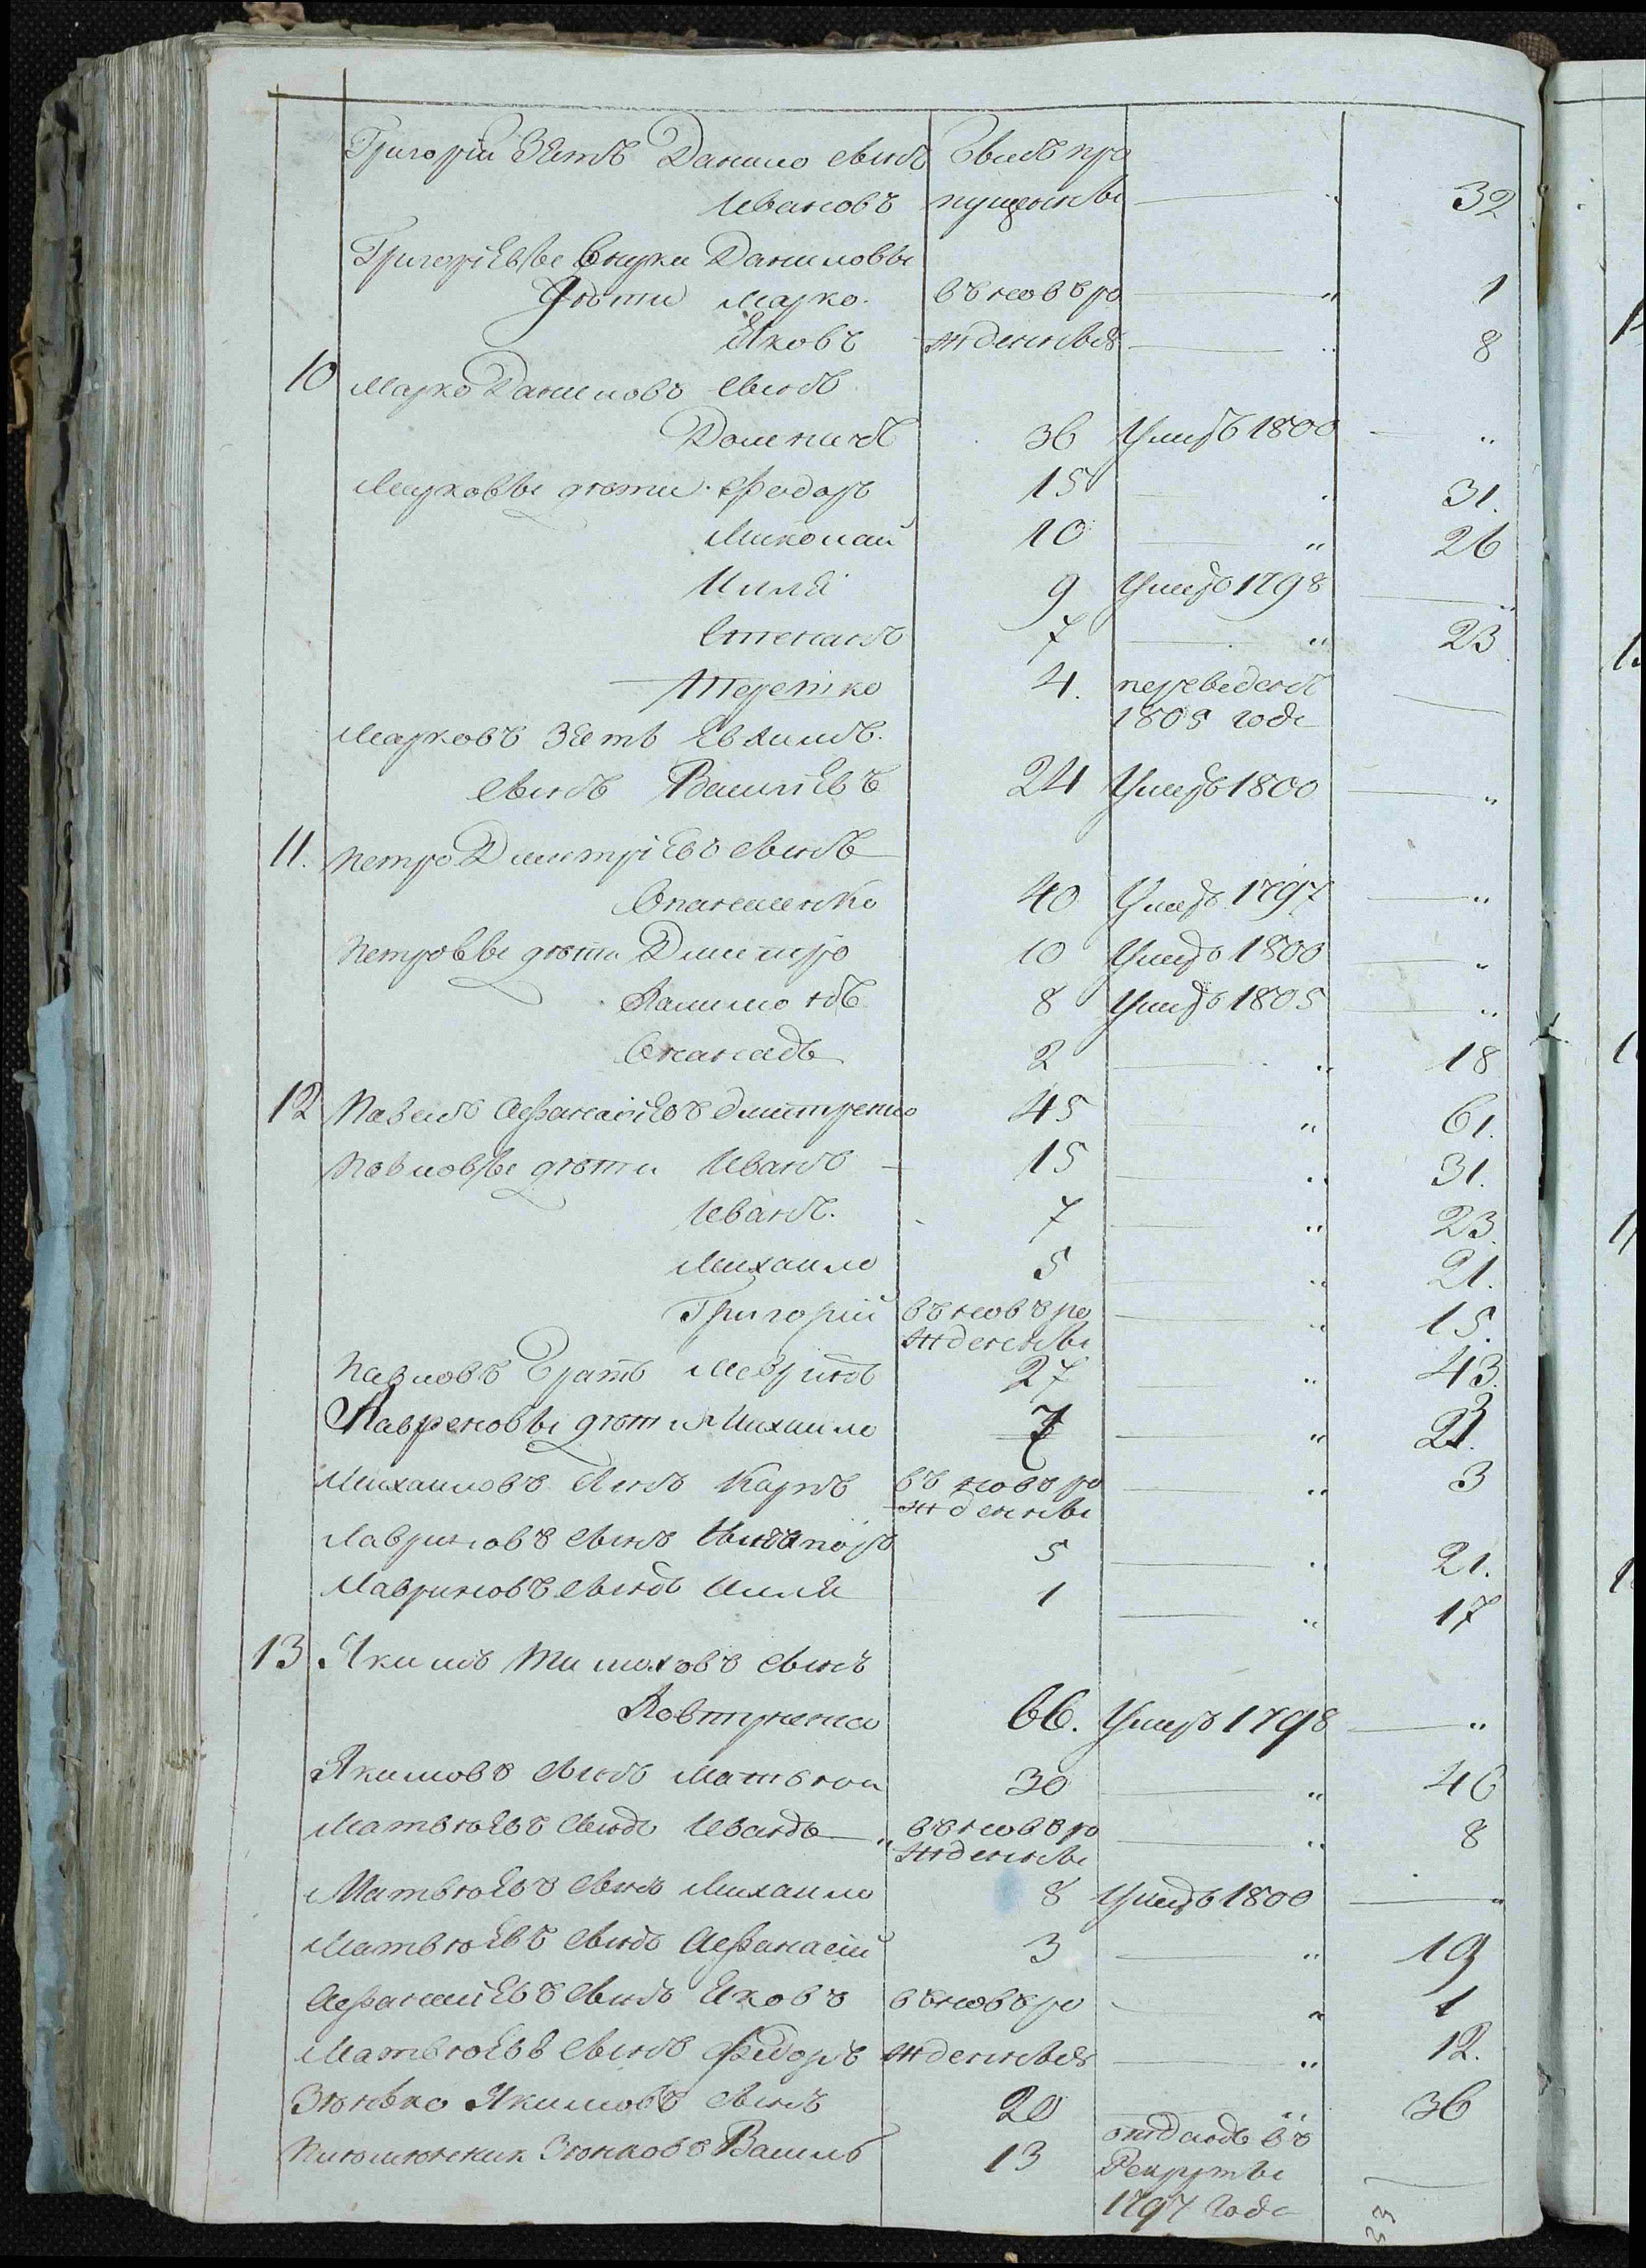 Григорій Зять Данило сынъ былъ про
Ивановъ пущенны — 32
Григорієвы Внуки Даниловы
дѣти Марко въ новъ ро — 1
Яковъ жденныя — 8
10 Марко Даниловъ сынъ
36 Умеръ 1800 — „
Марковы дѣти Федоръ 15 — 31.
Миколай 10 — „ 26
Илля 9 Умеръ 1798 — „
Степанъ 7 — „ 23
Терешко 4. переведенъ
1805 года —
Марковъ Зять Евхимъ
сынъ Василієвъ 24 Умеръ 1800 — „
11. Петро Дмитрієвъ сынъ
40 Умеръ 1797 — „
Петровы дѣти Дмитро 10 Умеръ 1800 — „
8 Умеръ 1805 — „
2 — „ 18
12 Павелъ Афанасієвъ Дмитренко 45 — „ 61.
Павловы дѣти Иванъ 15 — „ 31.
Иванъ. 7 — „ 23.
Михаило 5 — „ 21.
Григорій въ новъ ро — „ 15.
жденны
Павловъ братъ Лавринъ 27 — „ 43.
Лавреновы дѣти Михаило 7 — „ 23.
Михаиловъ сынъ Карпъ въ новъ ро — „ 3
жденны
Лавриновъ сынъ 5 — 21.
Лавриновъ сынъ Илля 1 — „ 17
13 Якимъ Тимоховъ сынъ
Ковтуненко 66. Умеръ 1798 — „
Якимовъ сынъ Матвѣй 30 — „ 46
Матвѣевъ сынъ Иванъ — „ въ новъ ро — „ 8
жденны
Матвѣевъ сынъ Михаило 8 Умеръ 1800 — „
Матвѣевъ сынъ Афанасій 3 — „ 19
Афанасієвъ сынъ Яковъ въ новъ ро — „ 1
Матвѣевъ сынъ Федоръ жденныя — „ 12.
Зѣнько Якимовъ сынъ 20 — „ 36
Зѣнковъ Василь 13 отданъ въ
Рекруты —
1797 года